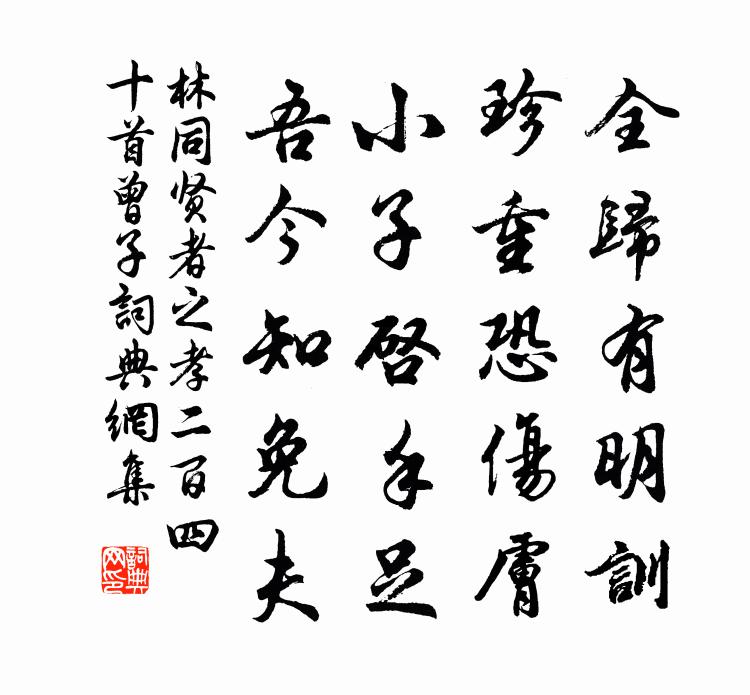 全歸有明訓
珍重恐傷膚
小子啓手足
吾今知免夫
林同贤者之孝二百四
十首曾子詞典網集
詞典
网印